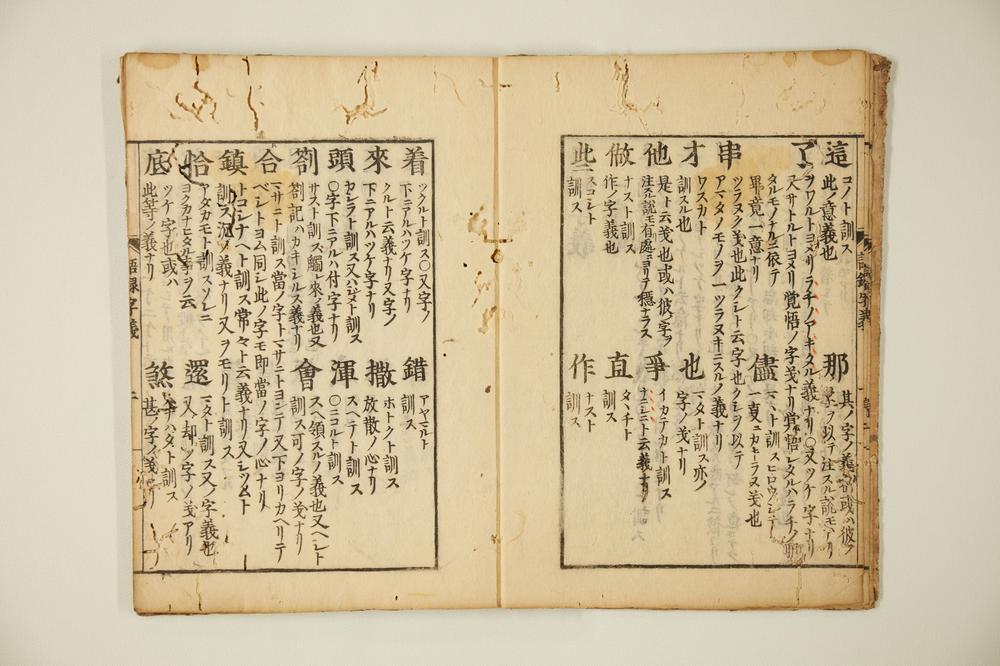 這 コノト訓ス
此ノ意義也
那 其ノ字ノ義
了
ヲワルトヨメリラチノアキタル義ナリ〇又ツケ字ナリ
又サトルトヨメリ覚悟ノ字ノ義ナリ覚悟シタルハラチノ
タルモノナルニ依テ
畢竟一意ナリ
儘 マヽト訓ス
串
ツラヌクノ義也此クシト云字也クシヲ以テ
アマタノモノヲ一ツラヌキニスルノ義ナリ
才 ワスカト
訓スル也
也 マタト訓ス亦ノ
字ノ義ナリ
他 是ト云義也或ハ彼字ヲ
注スル説モ有處ニヨリテ穩ナラス
爭 イカテカト訓ス
ナニシニト云義ナリ
做 ナスト訓ス
作ノ字ノ義也
直 タヽチト
訓ス
此 スコシト
訓ス
作 ナスト
訓ス
着 ツクルト訓ス〇又字ノ
下ニアルハツケ字ナリ
錯 アヤマルト
訓ス
來 クルト云義ナリ又字ノ
下ニアルハツケ字ナリ
撒 ホトクト訓ス
放散ノ心ナリ
頭 カシラト訓ス又ハジメト訓ス
〇字下ニアルハ付字ナリ
渾 スヘテト訓ス
〇ニコルト訓ス
劄 サスト訓ス觸レ來ノ義也又
劄記ハカキシルス義ナリ
會 スヘ領スルノ義也又ヘシト
訓ス可ノ字ノ義ナリ
合 マサニト訓ス當ノ字トマサニトヨンテ又下ヨリカヘリテ
ベシトヨム同シ此ノ字モ即當ノ字ノ心ナリ
鎮 トコシナヘト訓ス常々ト云義ナリ又シツムト
訓ス沉ノ義ナリ又ヲモリト訓ス
恰 アタカモト訓ス
ヨクカナヒタル事ヲ云
還 マタト訓ス又ノ字義也
又却ツ字ノ義アリ
底 ツケ字也或ハ
此等ノ義ナリ
煞 ハナハタト訓ス
甚ノ字ノ義ナリ
語録字義 二